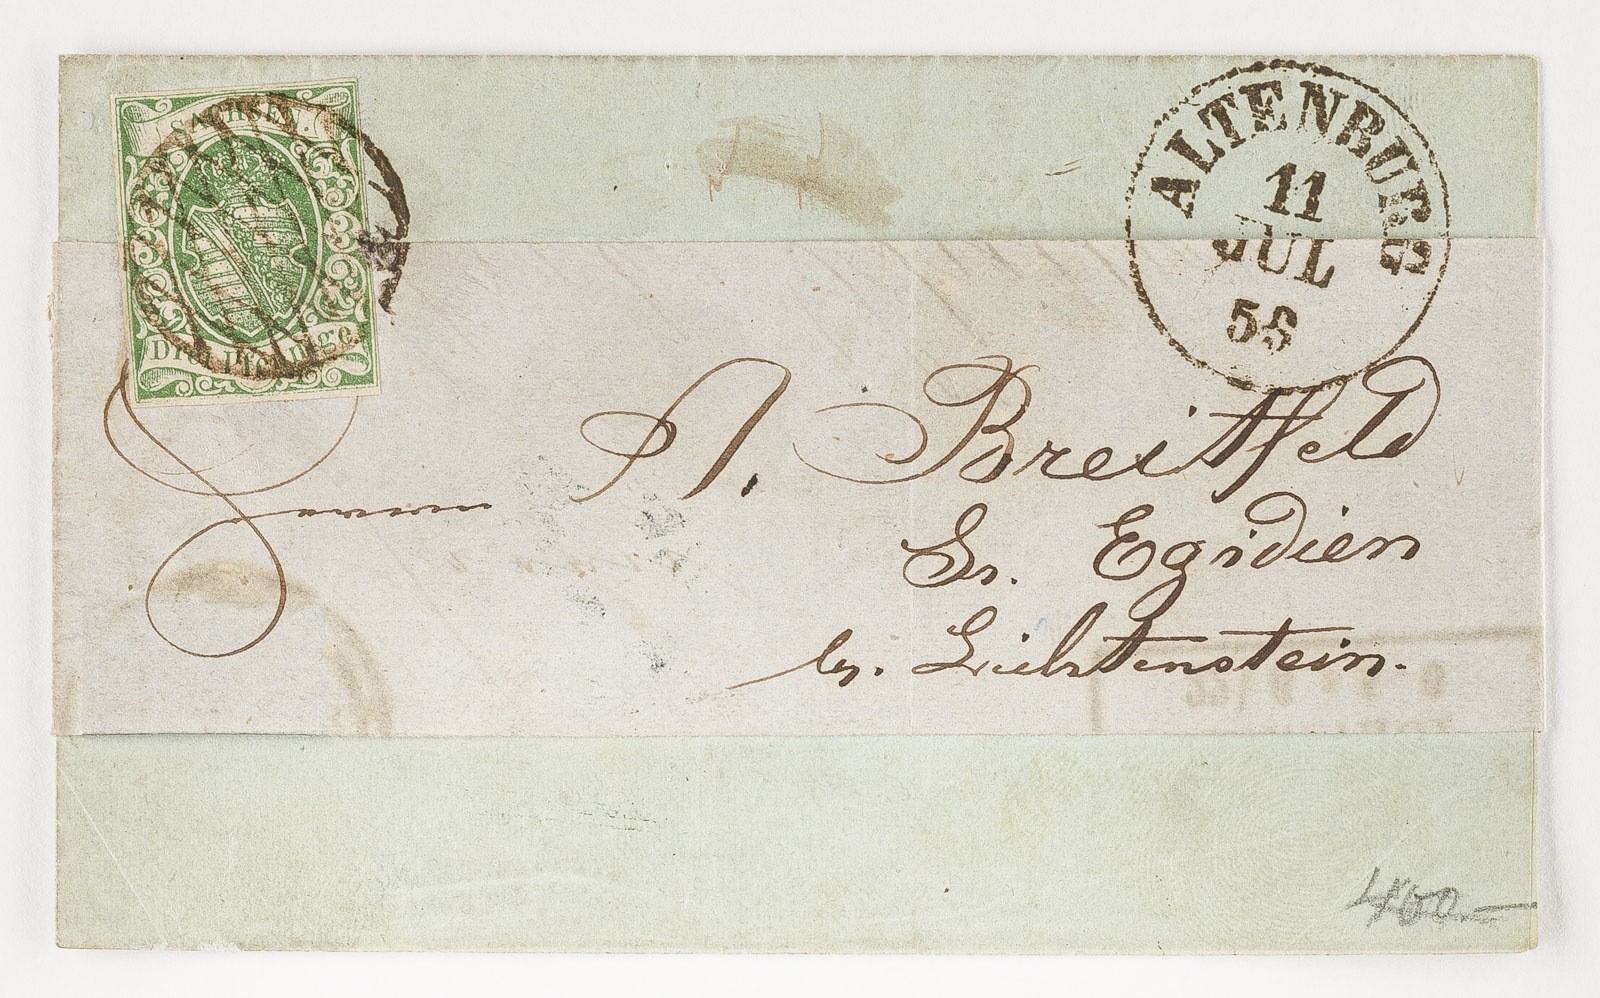 SACHSEN.
Drei Pfennige.
ALTENBURG
11
JUL
56
Herrn A. Breitfeld
St. Egidien
by. Lichtenstein.
400.—